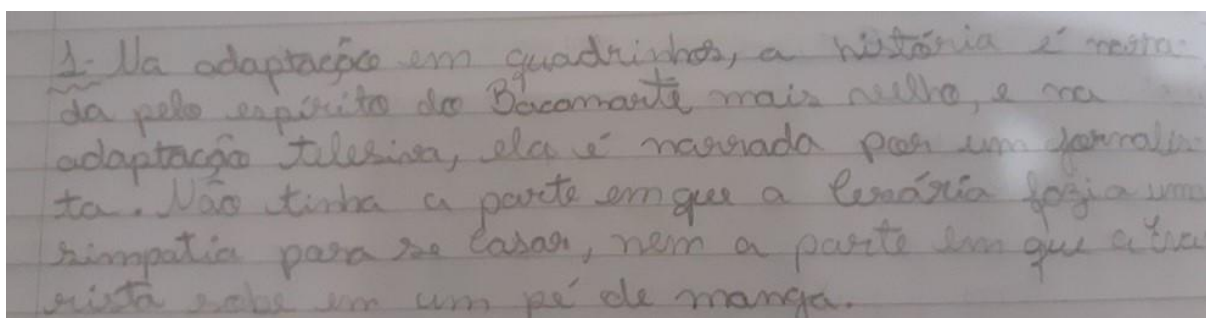 1- Na adaptação em quadrinhos, a história é narra-
da pelo espírito do Bacamarte mais velho, e na
adaptação televisiva, ela é narrada por um jornalis-
ta. Não tinha a parte em que a Cesária fazia uma
simpatia para se casar, nem a parte em que a
sobe em um pé de manga.